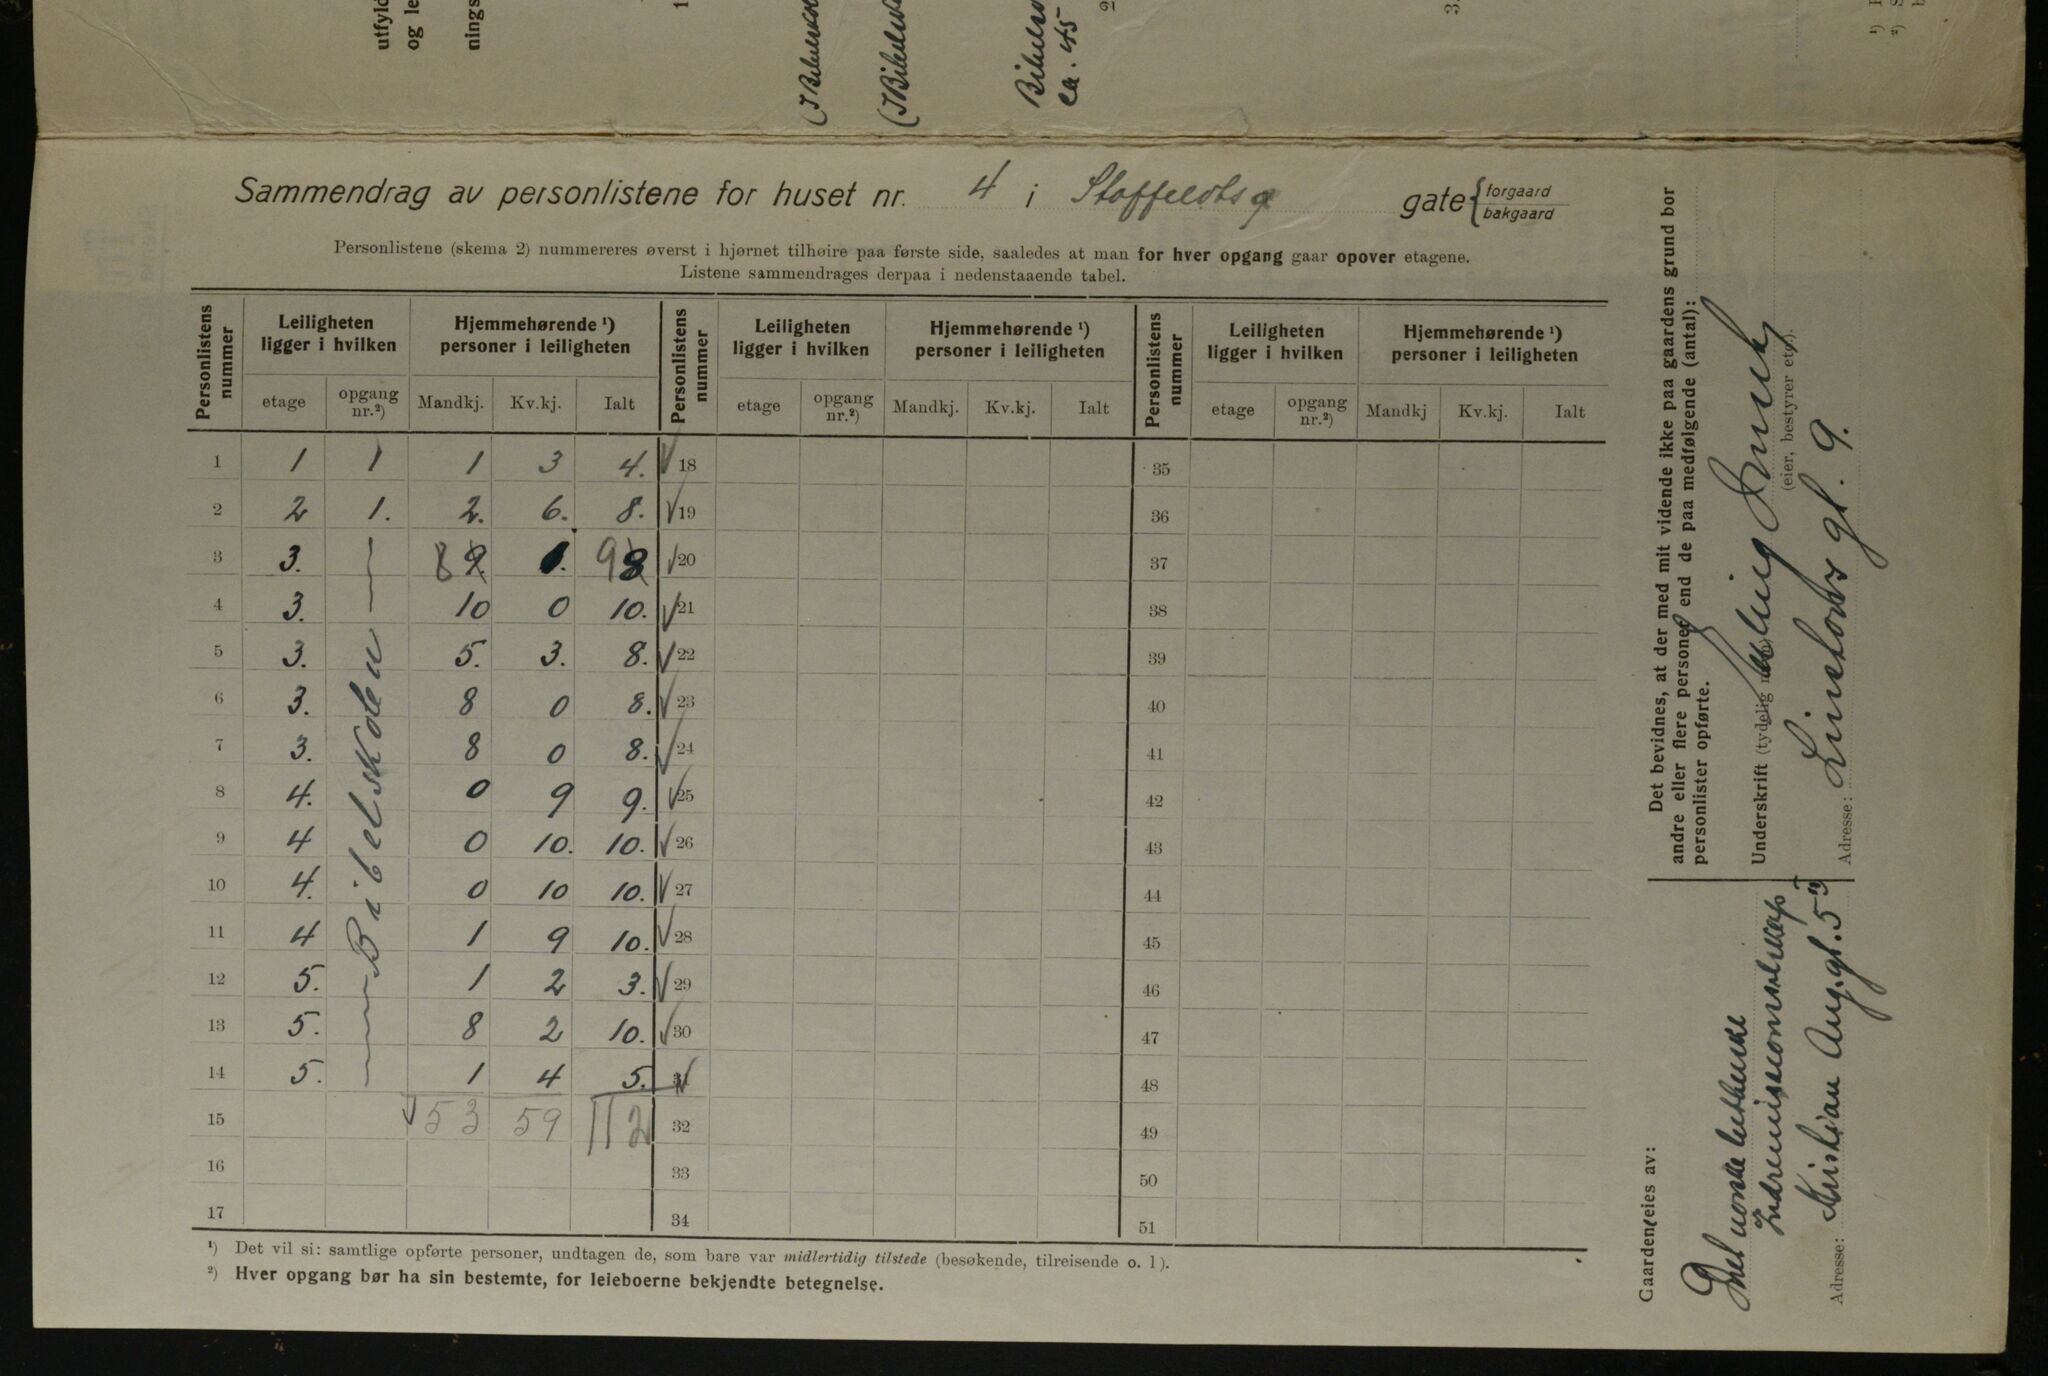 utfyld
og le
nings
1
(I Bibelsko
(I Bibelsk
Bibelsko
ca. 45
2
3.
Sammendrag av personlistene for huset nr. 4 i Stoffeldtsg gate {forgaard bakgaard
Personlistene (skema 2) nummereres øverst i hjørnet tilhøire paa første side, saaledes at man for hver opgang gaar opover etagene.
Listene sammendrages derpaa i nedenstaaende tabel.
Personlistens nummer | Leiligheten ligger i hvilken | Hjemmehørende ¹) personer i leiligheten | Personlistens nummer | Leiligheten ligger i hvilken | Hjemmehørende ¹) personer i leiligheten | Personlistens nummer | Leiligheten ligger i hvilken | Hjemmehørende ¹) personer i leiligheten
etage | opgang nr.²) | Mandkj. | Kv.kj. | Ialt | etage | opgang nr.²) | Mandkj. | Kv.kj. | Ialt | etage | opgang nr.²) | Mandkj | Kv.kj. | Ialt
1 1 1 1 3 4. 18 35
2 2 1. 2. 6. 8. 19 36
3 3. — 8 9. 1. 9 8 20 37
4 3. 10 0 10. 21 38
5 3. 5. 3. 8. 22 39
6 3. 8 0 8. 23 40
7 3. 8 0 8. 24 41
8 4. 0 9 9. 25 42
9 4 0 10. 10. 26 43
10 4. 0 10 10. 27 44
11 4 1 9 10. 28 45
12 5. 1 2 3. 29 46
13 5. 8 2 10. 30 47
14 5. 1 4 5. 31 48
Bibelskolen
15 53 59 112 32 49
16 33 50
17 34 51
¹) Det vil si: samtlige opførte personer, undtagen de, som bare var midlertidig tilstede (besøkende, tilreisende o. l).
²) Hver opgang bør ha sin bestemte, for leieboerne bekjendte betegnelse.
Det bevidnes, at der med mit vidende ikke paa gaardens grund bor
andre eller flere personer end de paa medfølgende (antal):
personlister opførte.
Underskrift (tydelig
(eier, bestyrer etc.).
Adresse: Linstows gt. 9.
Gaarden eies av:
Det norske lutherske
Indremissionsselskap
Adresse: Kristian Aug.gt. 5
¹)
²)